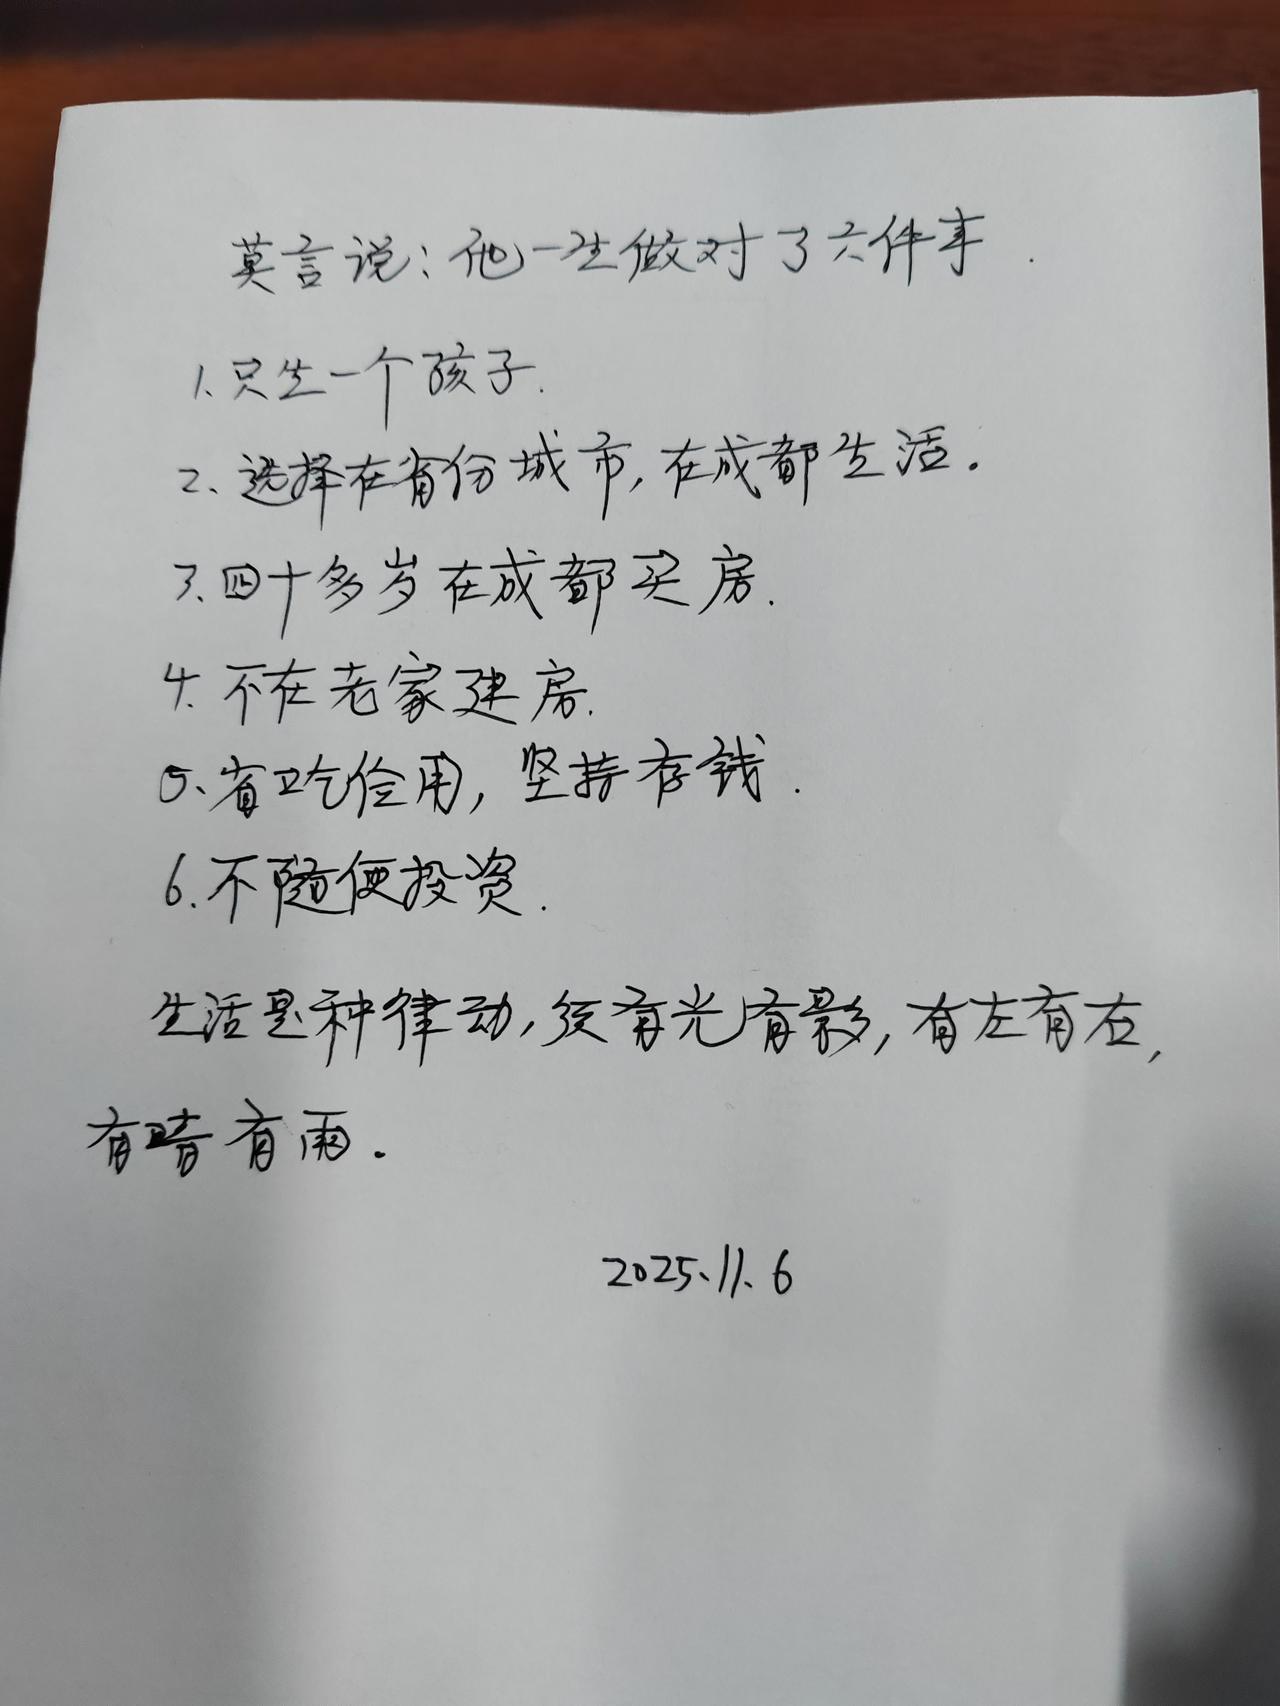 莫言说：他一生做对了六件事.
1、只生一个孩子.
2、选择在省份城市，在成都生活。
3、四十多岁在成都买房.
4、不在老家建房.
5、省吃俭用，坚持存钱.
6.不随便投资.
生活是种律动，须有光有影，有左有右，
有晴有雨。
2025.11.6